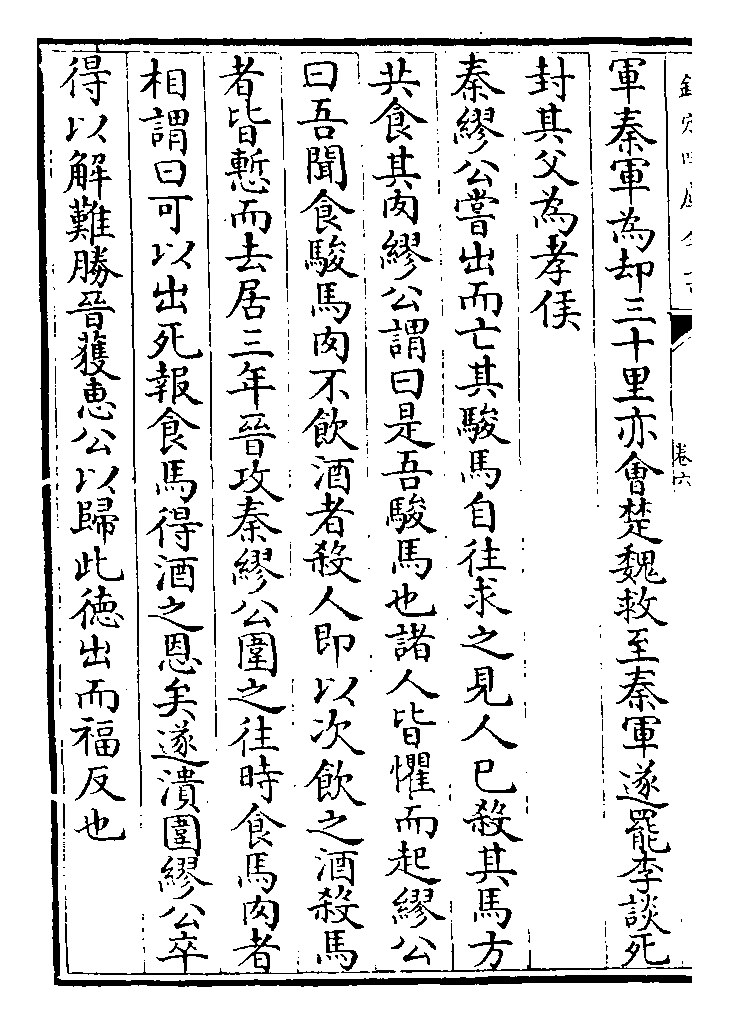 軍秦軍為却三十里亦㑹楚魏救至秦軍遂罷李談死
封其父為孝侯
秦繆公嘗出而亡其駿馬自往求之見人已殺其馬方
共食其肉繆公謂曰是吾駿馬也諸人皆懼而起繆公
曰吾聞食駿馬肉不飲酒者殺人即以次飲之酒殺馬
者皆慙而去居三年晉攻秦繆公圍之往時食馬肉者
相謂曰可以出死報食馬得酒之恩矣遂潰圍繆公卒
得以解難勝晉獲惠公以歸此徳出而福反也
卷六